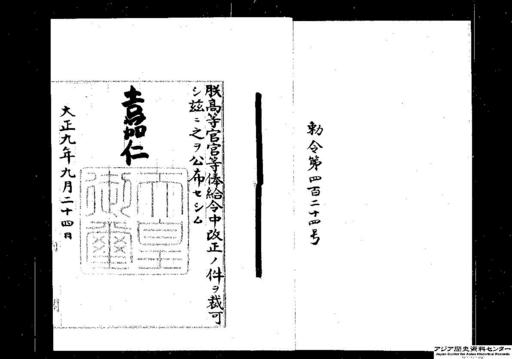 勅令第四百二十四号
朕高等官官等俸給令中改正ノ件ヲ裁可
シ茲ニ之ヲ公布セシム
嘉仁
天皇御璽
大正九年九月二十四日
アジア歴史資料センター
Japan Center for Asian Historical Records